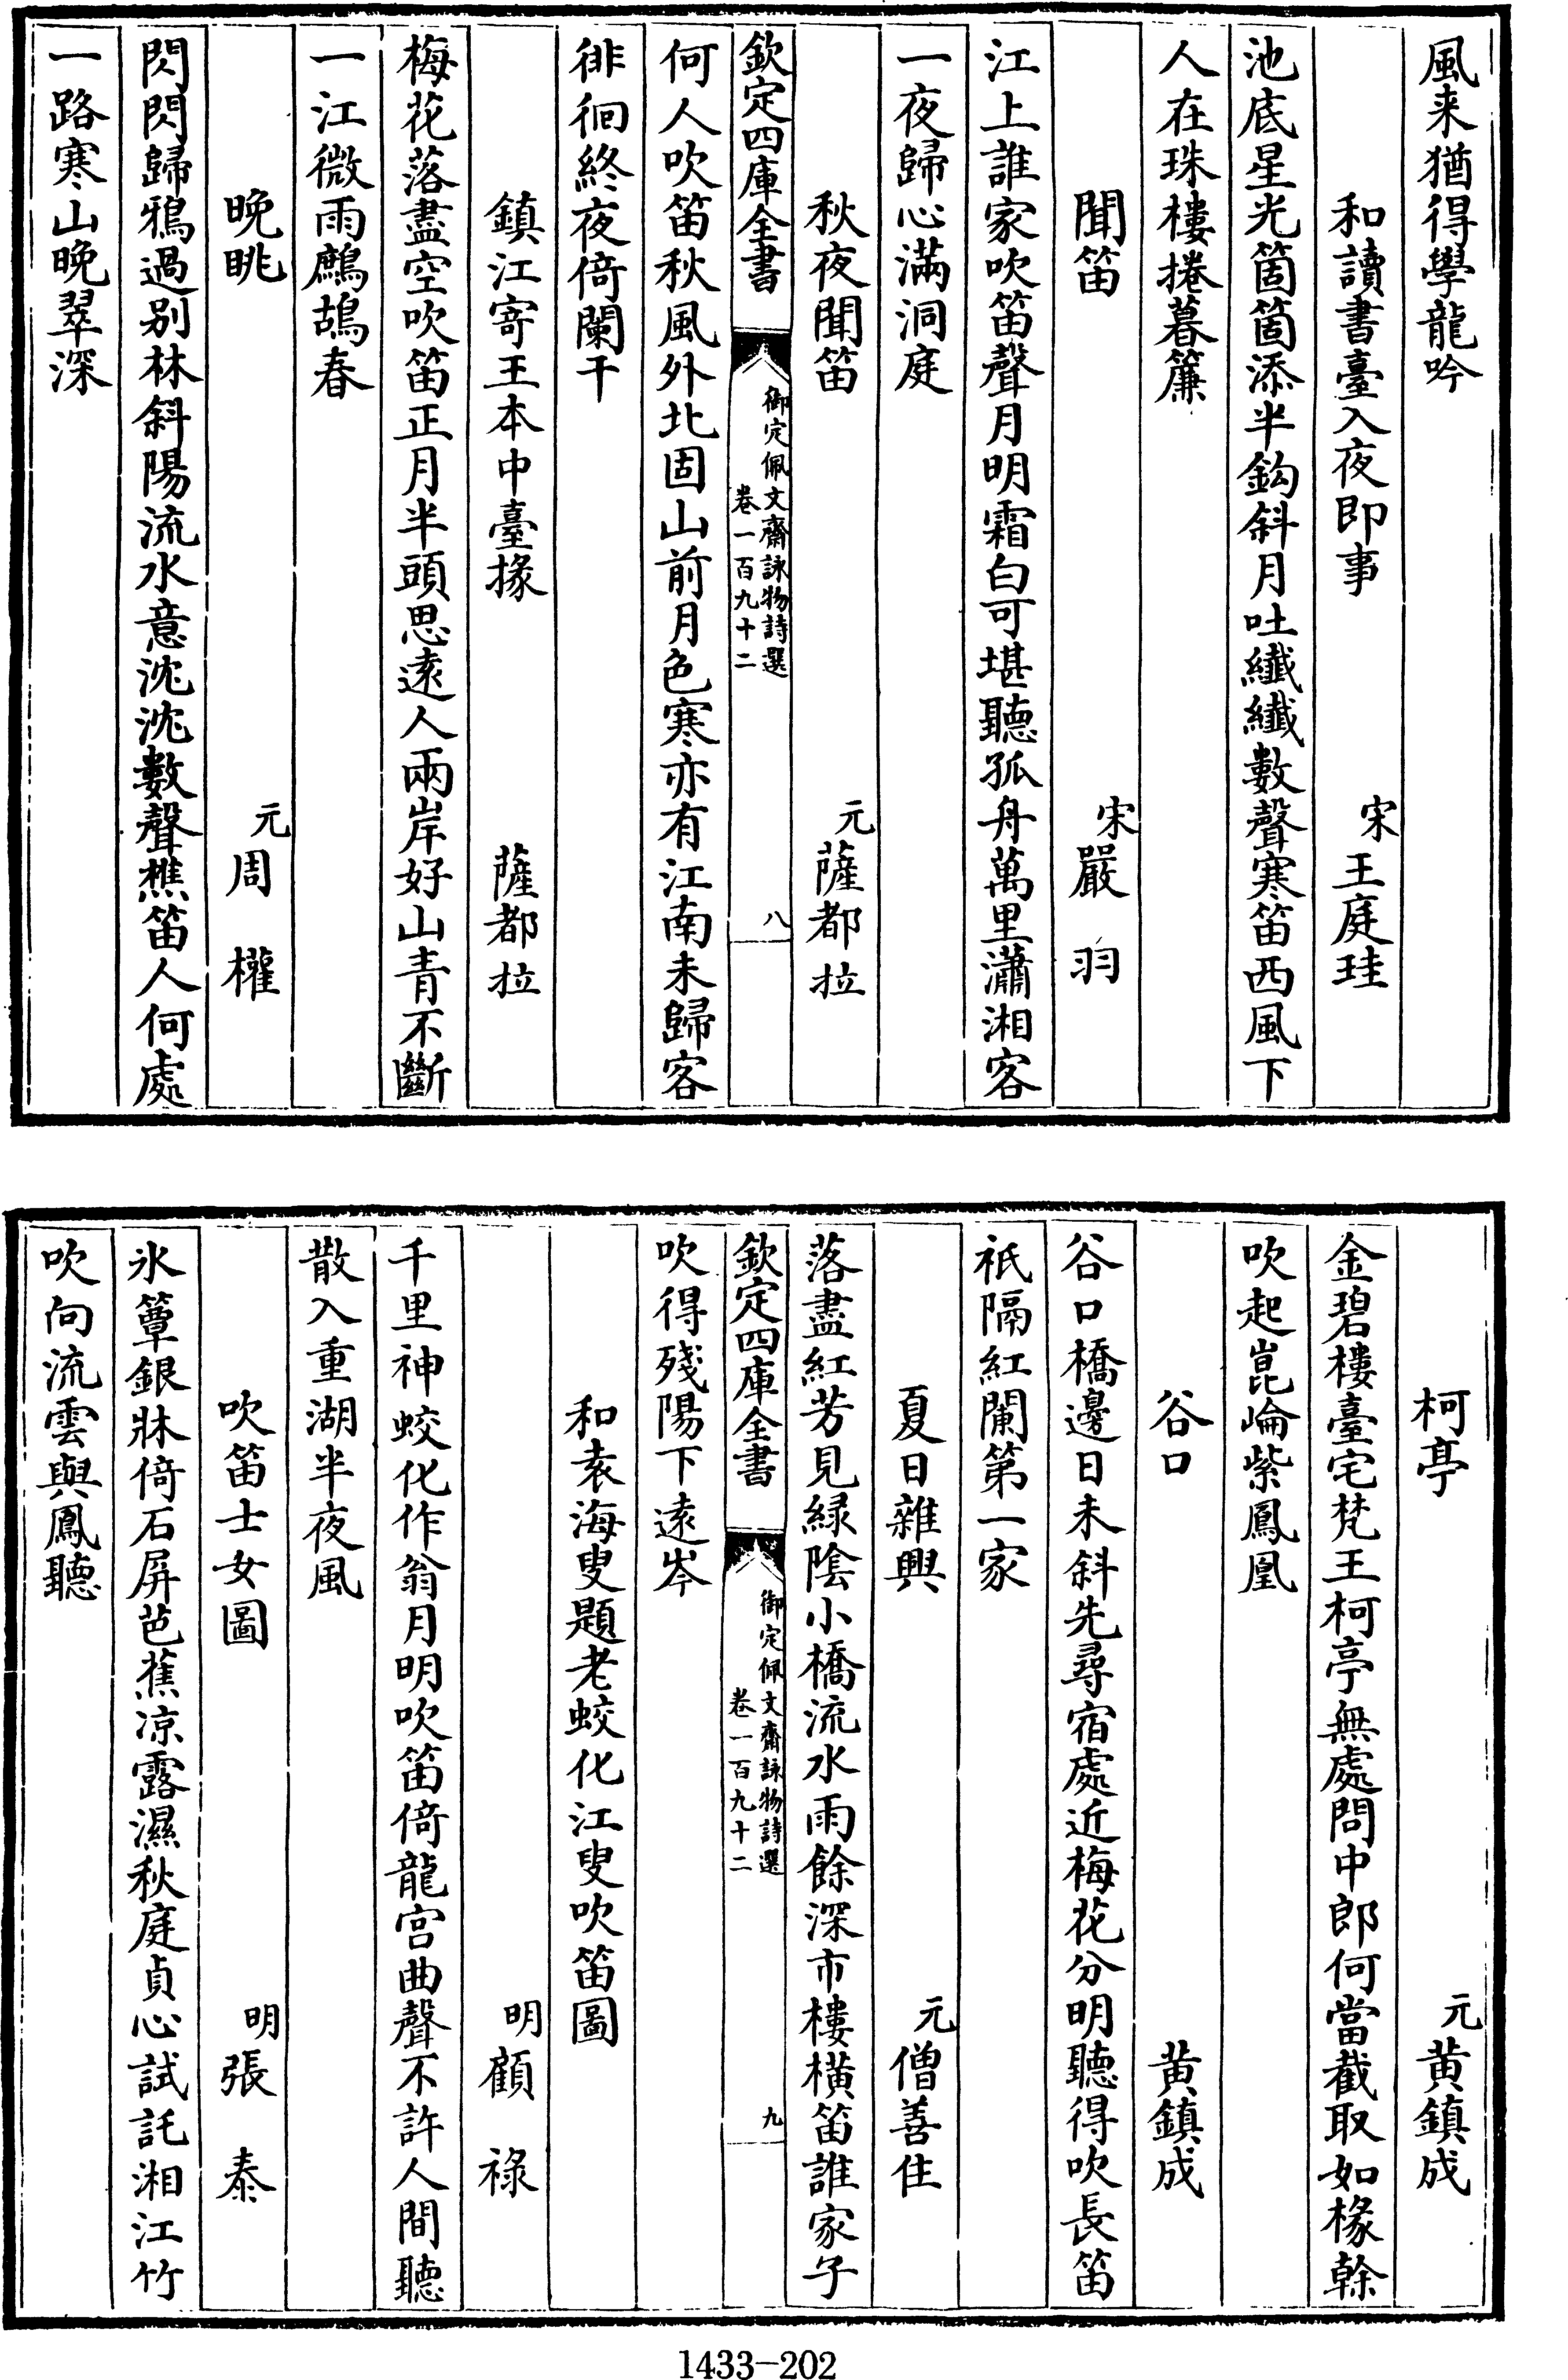 風来猶得學龍吟
和讀書臺入夜即事 宋王庭珪
池底星光箇箇添半鈎斜月吐纎纎數聲寒笛西風下
人在珠樓捲暮簾
聞笛 宋嚴羽
江上誰家吹笛聲月明霜白可堪聽孤舟萬里瀟湘客
一夜歸心滿洞庭
秋夜聞笛 元薩都拉
欽定四庫全書 御定佩文齋詠物詩選 卷一百九十二 八
何人吹笛秋風外北固山前月色寒亦有江南未歸客
徘徊終夜倚闌干
鎮江寄王本中臺掾 薩都拉
梅花落盡空吹笛正月半頭思逺人兩岸好山青不斷
一江微雨鷓鴣春
晚眺 元周權
閃閃歸鴉過别林斜陽流水意沈沈數聲樵笛人何處
一路寒山晚翠深
柯亭 元黄鎮成
金碧樓臺宅梵王柯亭無處問中郎何當截取如椽榦
吹起崑崙紫鳳凰
谷口 黄鎮成
谷口橋邊日未斜先尋宿處近梅花分明聽得吹長笛
祇隔紅闌第一家
夏日雜興 元僧善住
落盡紅芳見緑陰小橋流水雨餘深市樓横笛誰家子
欽定四庫全書 御定佩文齋詠物詩選 卷一百九十二 九
吹得殘陽下逺岑
和袁海叟題老蛟化江叟吹笛圖
明顧祿
千里神蛟化作翁月明吹笛倚龍宫曲聲不許人間聽
散入重湖半夜風
吹笛士女圖 明張泰
氷簟銀牀倚石屏芭蕉凉露濕秋庭貞心試託湘江竹
吹向流雲與鳳聽
1433-202